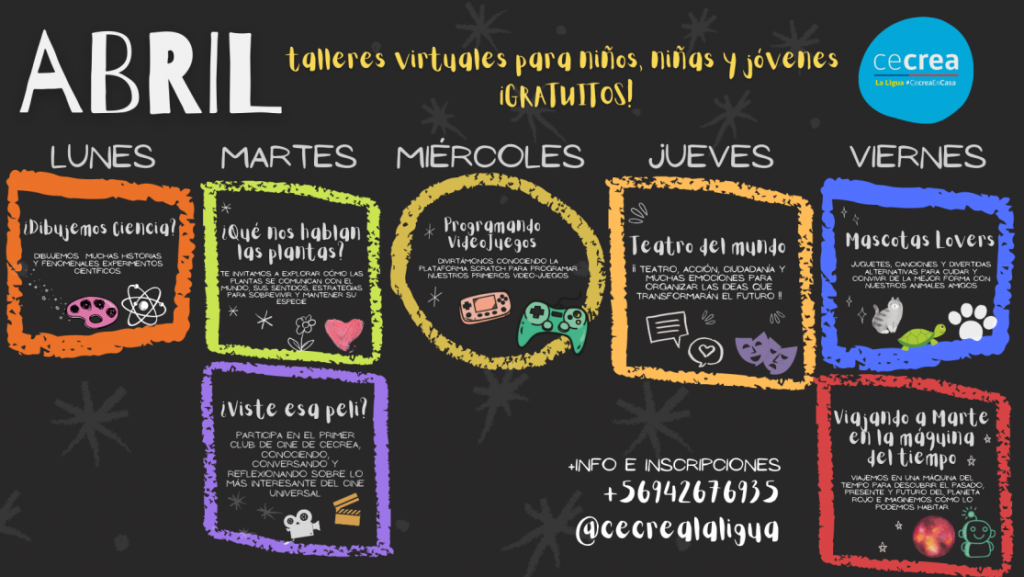 ABRIL
talleres virtuales para niños, niñas y jóvenes
¡GRATUITOS!
cecrea
La Ligua #CecreaEnCasa
LUNES
MARTES
MIÉRCOLES
JUEVES
VIERNES
¿Dibujemos Ciencia?
DIBUJEMOS MUCHAS HISTORIAS
Y FENOMENALES EXPERIMENTOS
CIENTÍFICOS
¿Qué nos hablan
las plantas?
TE INVITAMOS A EXPLORAR CÓMO LAS
PLANTAS SE COMUNICAN CON EL
MUNDO, SUS SENTIDOS, ESTRATEGIAS
PARA SOBREVIVIR Y MANTENER SU
ESPECIE
Programando
VideoJuegos
DIVIRTÁMONOS CONOCIENDO LA
PLATAFORMA SCRATCH PARA PROGRAMAR
NUESTROS PRIMEROS VIDEO-JUEGOS
Teatro del mundo
¡¡ TEATRO, ACCIÓN, CIUDADANÍA Y
MUCHAS EMOCIONES PARA
ORGANIZAR LAS IDEAS QUE
TRANSFORMARÁN EL FUTURO !!
Mascotas Lovers
JUGUETES, CANCIONES Y DIVERTIDAS
ALTERNATIVAS PARA CUIDAR Y
CONVIVIR DE LA MEJOR FORMA CON
NUESTROS ANIMALES AMIGOS
¿Viste esa peli?
PARTICIPA EN EL PRIMER
CLUB DE CINE DE CECREA,
CONOCIENDO,
CONVERSANDO Y
REFLEXIONANDO SOBRE LO
MÁS INTERESANTE DEL CINE
UNIVERSAL
Viajando a Marte
en la máquina
del tiempo
VIAJEMOS EN UNA MÁQUINA DEL
TIEMPO PARA DESCUBRIR EL PASADO,
PRESENTE Y FUTURO DEL PLANETA
ROJO E IMAGINEMOS COMO LO
PODEMOS HABITAR
+INFO E INSCRIPCIONES
+56942676935
@cecrealaligua